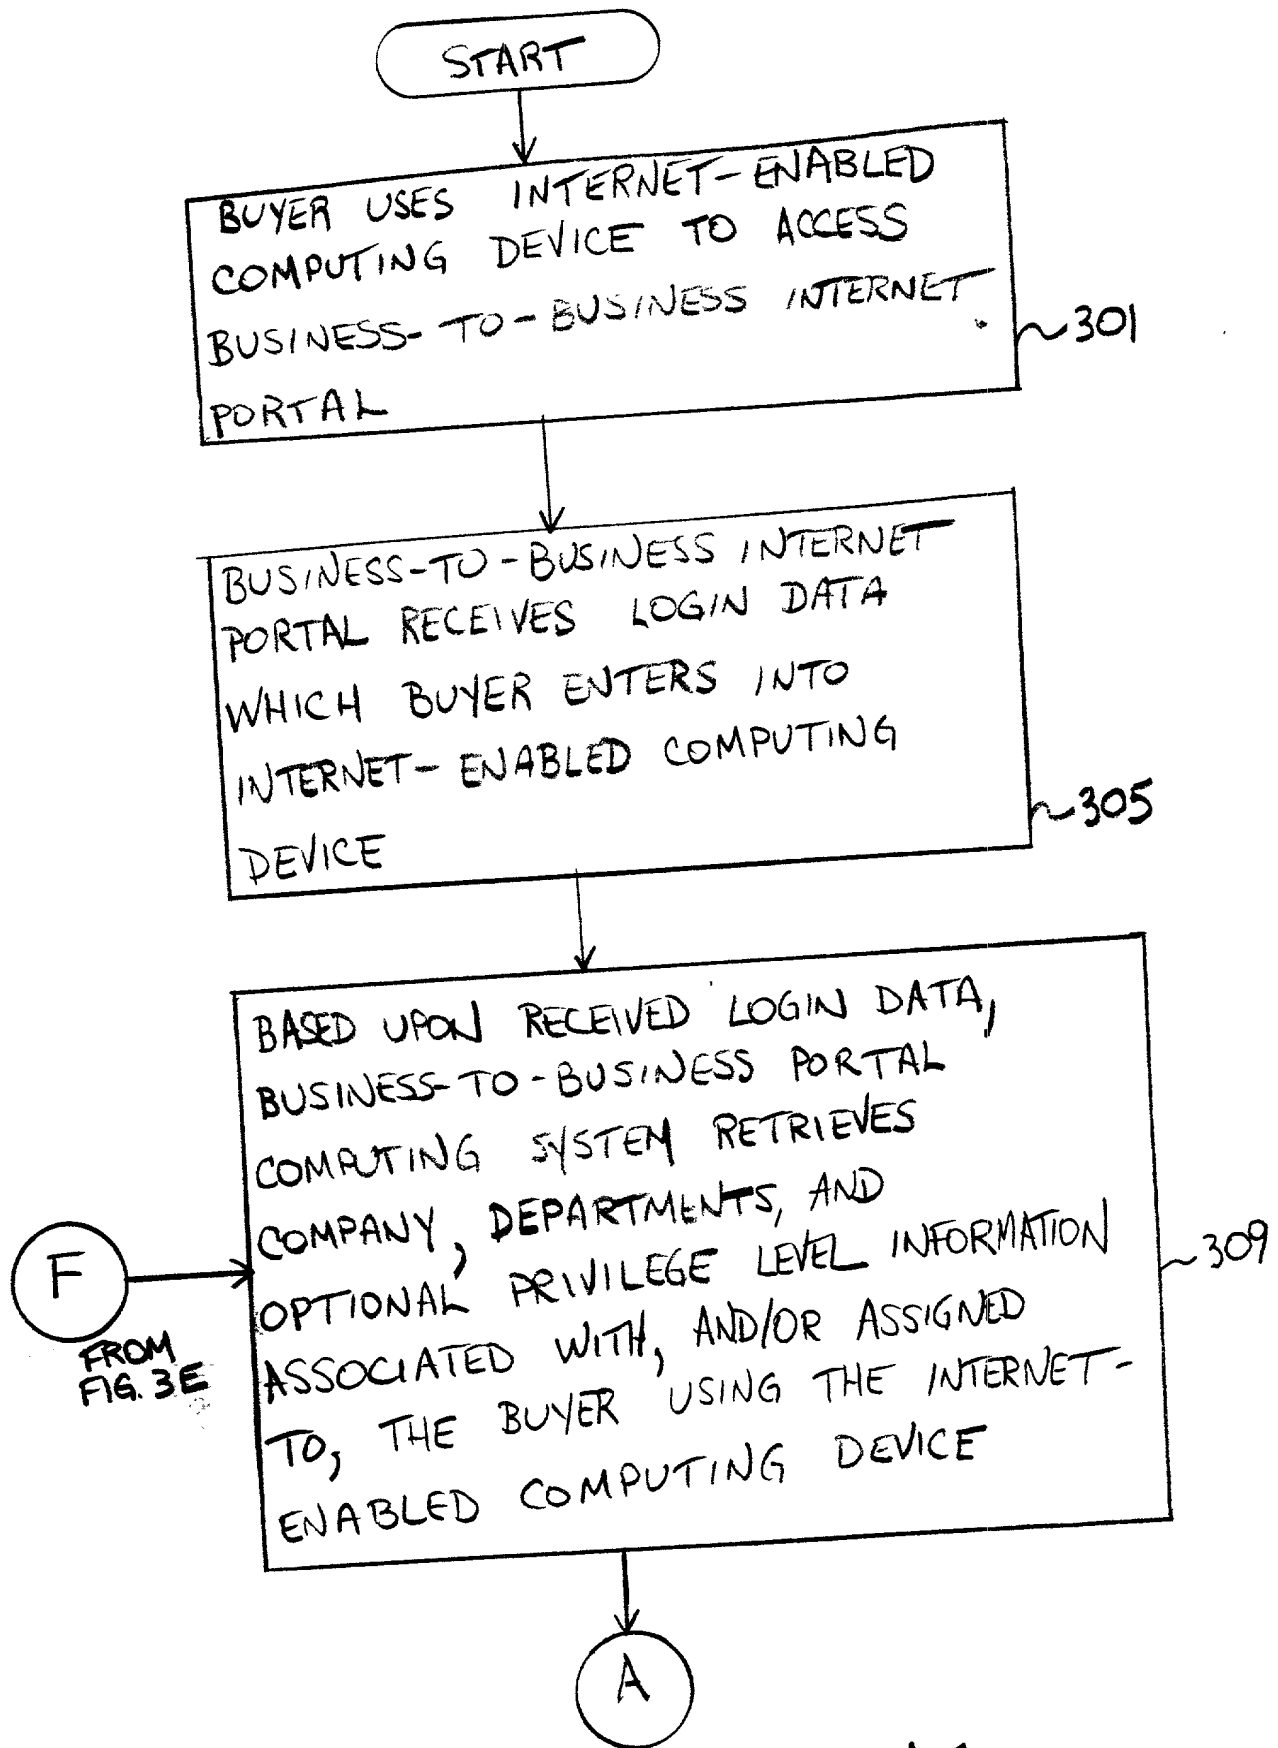 START
BUYER USES INTERNET-ENABLED
COMPUTING DEVICE TO ACCESS
BUSINESS-TO-BUSINESS INTERNET
PORTAL
~301
BUSINESS-TO-BUSINESS INTERNET
PORTAL RECEIVES LOGIN DATA
WHICH BUYER ENTERS INTO
INTERNET-ENABLED COMPUTING
DEVICE
~305
BASED UPON RECEIVED LOGIN DATA,
BUSINESS-TO-BUSINESS PORTAL
COMPUTING SYSTEM RETRIEVES
COMPANY, DEPARTMENTS, AND
OPTIONAL PRIVILEGE LEVEL INFORMATION
ASSOCIATED WITH, AND/OR ASSIGNED
TO, THE BUYER USING THE INTERNET-
ENABLED COMPUTING DEVICE
~309
F
FROM
FIG. 3E
A